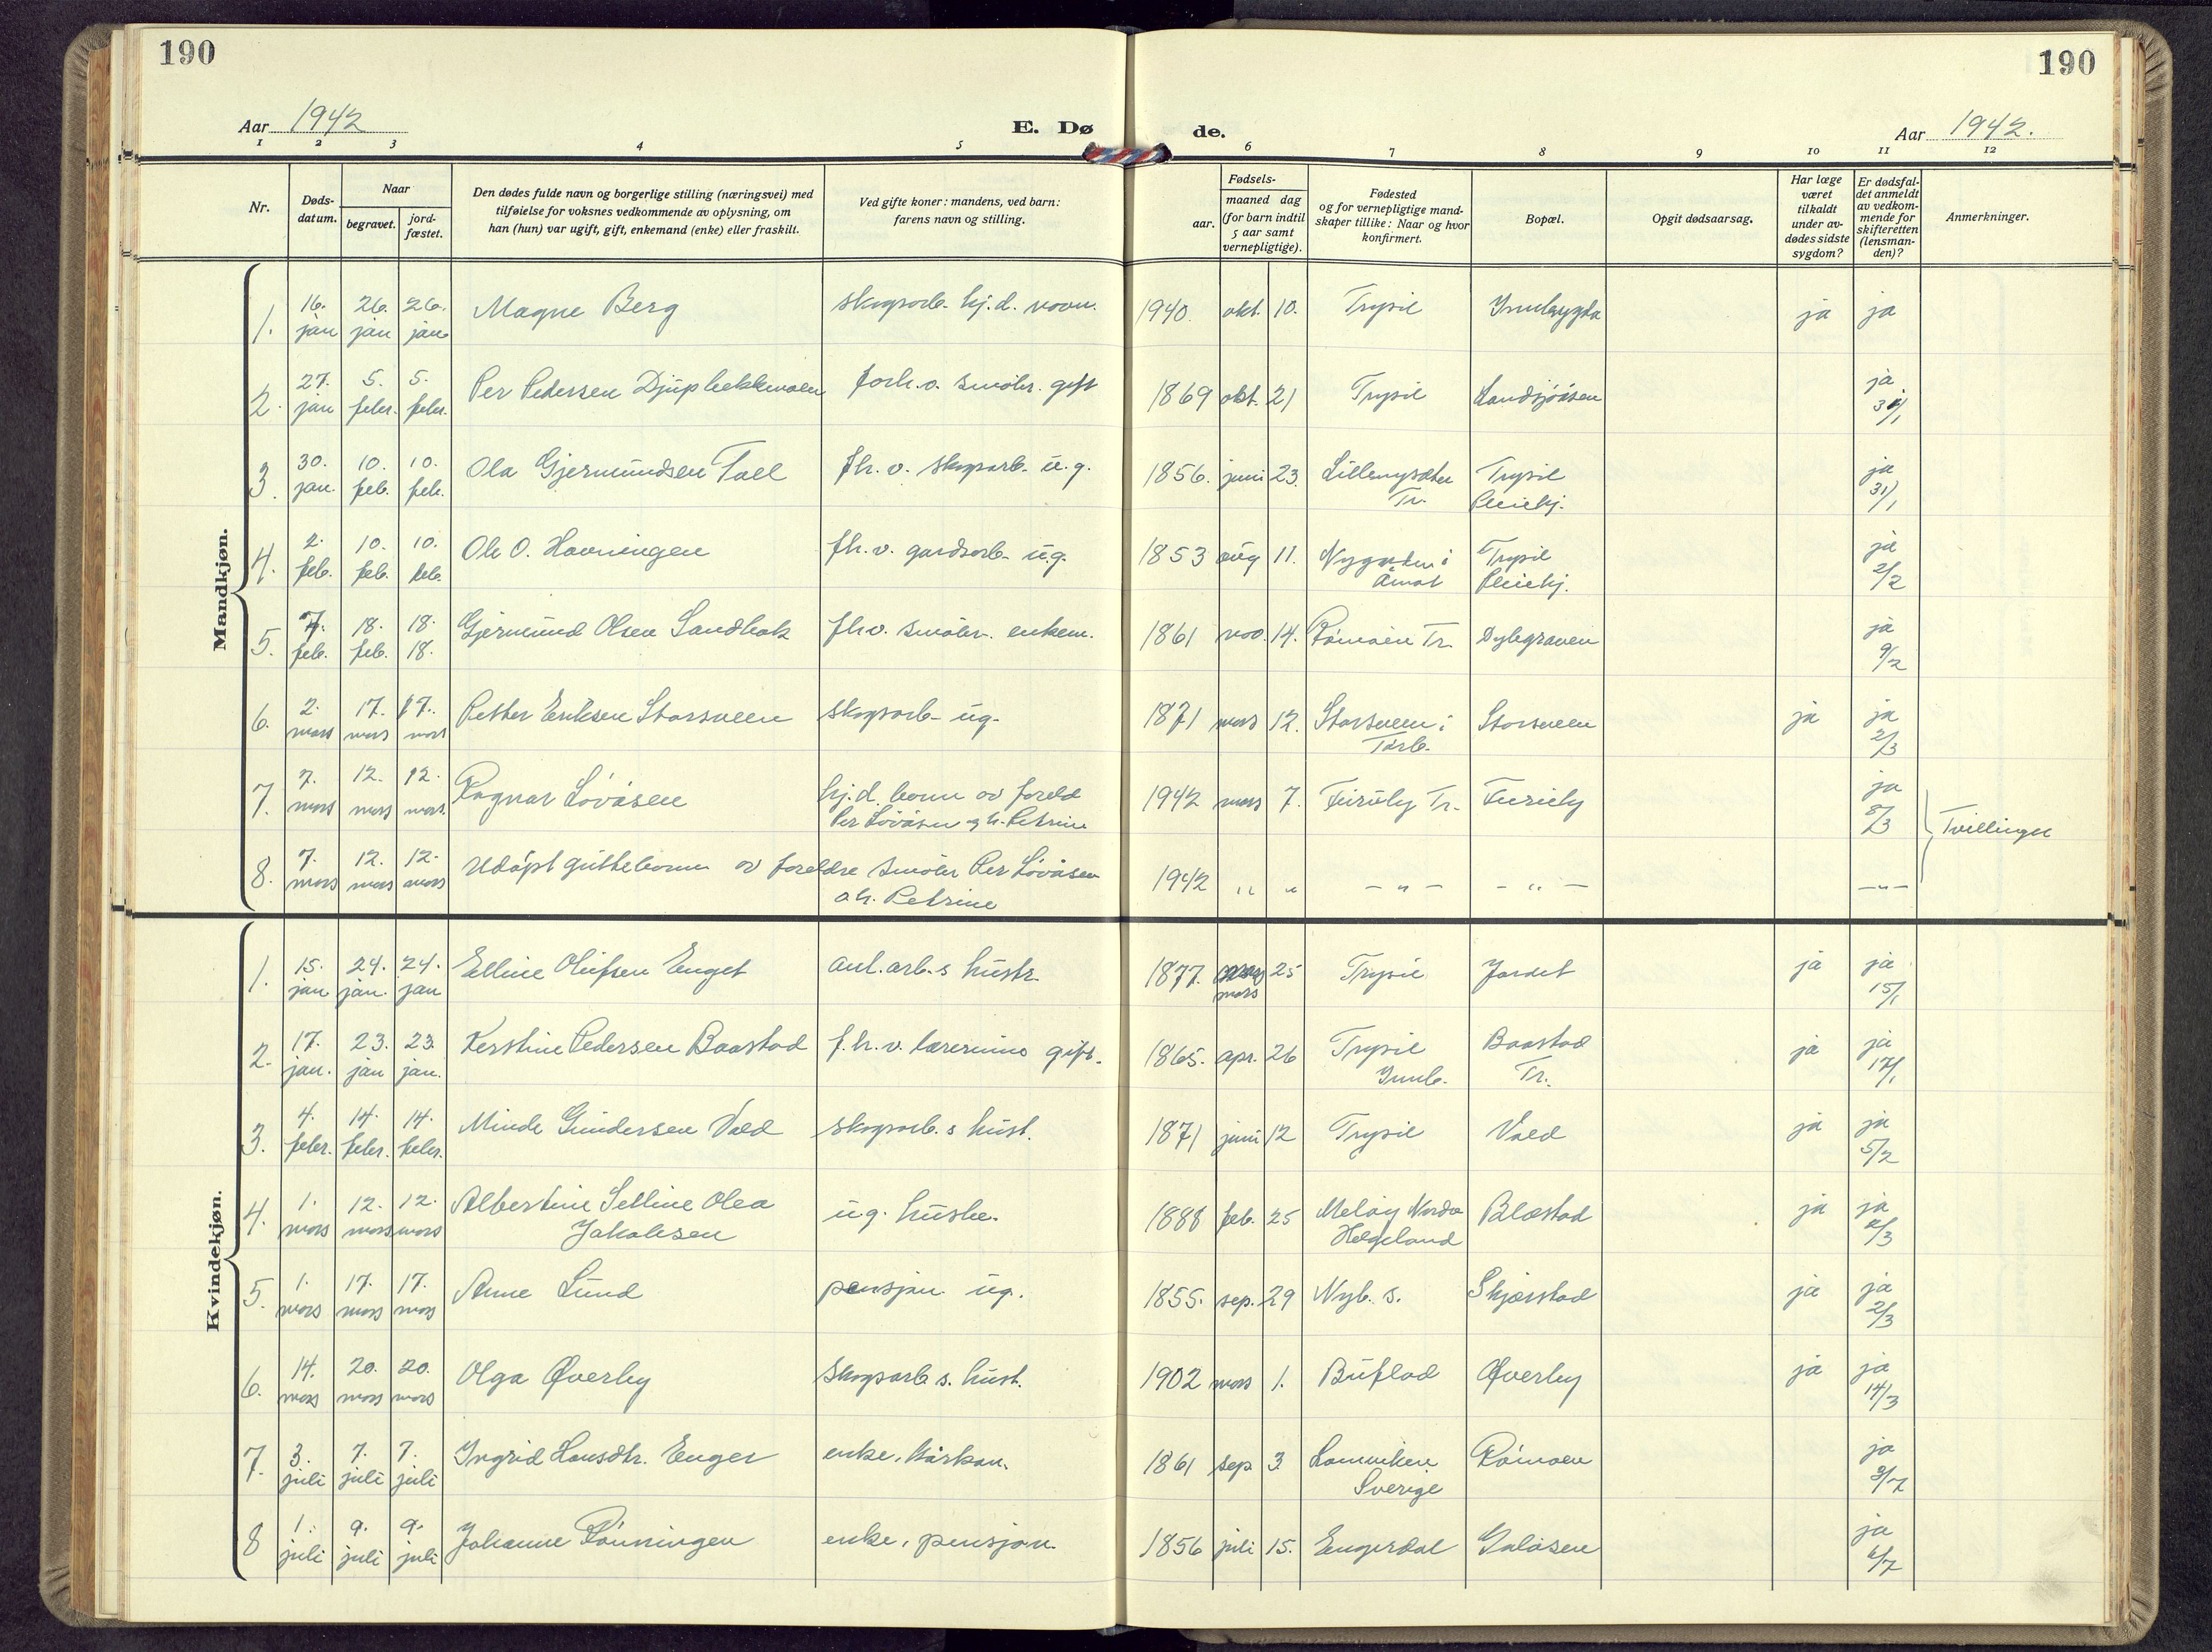 190
190
Aar 1942
E. Dø
de.
Aar 1942.
1 2 3 4 5 6 7 8 9 10 11 12
Nr.
Døds-
datum.
Naar
begravet.
jord-
fæstet.
Den dødes fulde navn og borgerlige stilling (næringsvei) med
tilføielse for voksnes vedkommende av oplysning, om
han (hun) var ugift, gift, enkemand (enke) eller fraskilt.
Ved gifte koner: mandens, ved barn:
farens navn og stilling.
Fødsels-
aar.
maaned dag
(for barn indtil
5 aar samt
vernepligtige).
Fødested
og for vernepligtige mand-
skaper tillike: Naar og hvor
konfirmert.
Bopæl.
Opgit dødsaarsag.
Har læge
været
tilkaldt
under av-
dødes sidste
sygdom?
Er dødsfal-
det anmeldt
av vedkom-
mende for
skifteretten
(lensman-
den)?
Anmerkninger.
Mandkjøn.
1. 16. jan 26. jan 26. jan Magne Berg skogsarb. hj.d. 1940. okt. 10. Trysil Innbygda ja ja
2. 27. jan 5. febr. 5. febr. Per Pedersen Djupbekkmoen forh.v. småbr. gift 1869 okt. 21 Trysil Landsjøåsen ja
3. 30. jan. 10. feb. 10. feb. Ola Gjermundsen fh.v. skogsarb. ug. 1856. juni 23. Lillenysæter Tr. Trysil Pleiehj. ja 31/1
4. 2. feb. 10. feb. 10. feb. Ole O. Havningen fh.v. gardsarb. ug. 1853 aug 11. i Åmot Trysil Pleiehj. ja 2/2
5. 7. feb. 18. feb. 18. 18. Gjermund Olsen Sandbak fhv. småbr. enkem. 1861 nov. 14. Rømoen Tr. Dybgraven ja 9/2
6. 2. mars 17. mars 17. mars Petter Eriksen Storsveen skogsarb. ug. 1871 mars 12. Storsveen i Tørb. Storsveen ja ja 2/3
7. 7. mars 12. mars 12. mars. Ragnar Lövåsen hj.d. barn av foreld Per Lövåsen og h. Petrine 1942 mars 7. Furuly Tr. Furuly ja 8/3 Tvillinger
8. 7. mars 12. mars 12. mars Udöpt guttebarn av foreldre småbr Per Lövåsen o h. Petrine 1942 " " — " — — " — — " —
Kvindekjøn.
1. 15. jan 24. jan. 24. jan Elline Olufsen Enget anl.arb.s hustr. 1877. mars 25 Trysil Jordet ja ja 15/1
2. 17. jan. 23. jan 23. jan. Kerstine Pedersen Baastad f.h.v. lærerinne gift. 1865. apr. 26 Trysil Innb. Baastad Tr. ja ja 17/1
3. 4. febr. 14. febr. 14. febr. Minde Gundersen Vald skogsarb.s hust. 1871 juni 12 Trysil Vald ja ja 5/2
4. 1. mars 12. mars 12. mars Albertine Selline Olea Jakobsen ug. hushe. 1888 feb. 25 Meløy Nordre Helgeland Blæstad ja ja 2/3
5. 1. mars 17. mars 17. mars Anne Lund pensjon. ug. 1855. sep. 29 Nyb. s. Skjærstad ja ja 2/3
6. 14. mars 20. mars 20. mars Olga Øverby Skogsarb s. hust. 1902 mars 1. Buflod Øverby ja ja 14/3
7. 3. juli 7. juli 7. juli Ingrid Hansdtr. Enger enke, kårkon. 1861 sep 3. Sverige Rømoen ja 3/7
8 1. juli 9. juli 9. juli Johanne Rønningen enke, pensjon. 1856 juli 15. Engerdal Galåsen ja 6/7